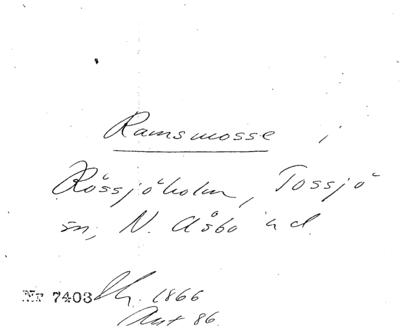 Ramsmosse i
Rössjöholm, Tossjö
sn, N. Åsbo hd
Nr 7403 1866
Ant 86